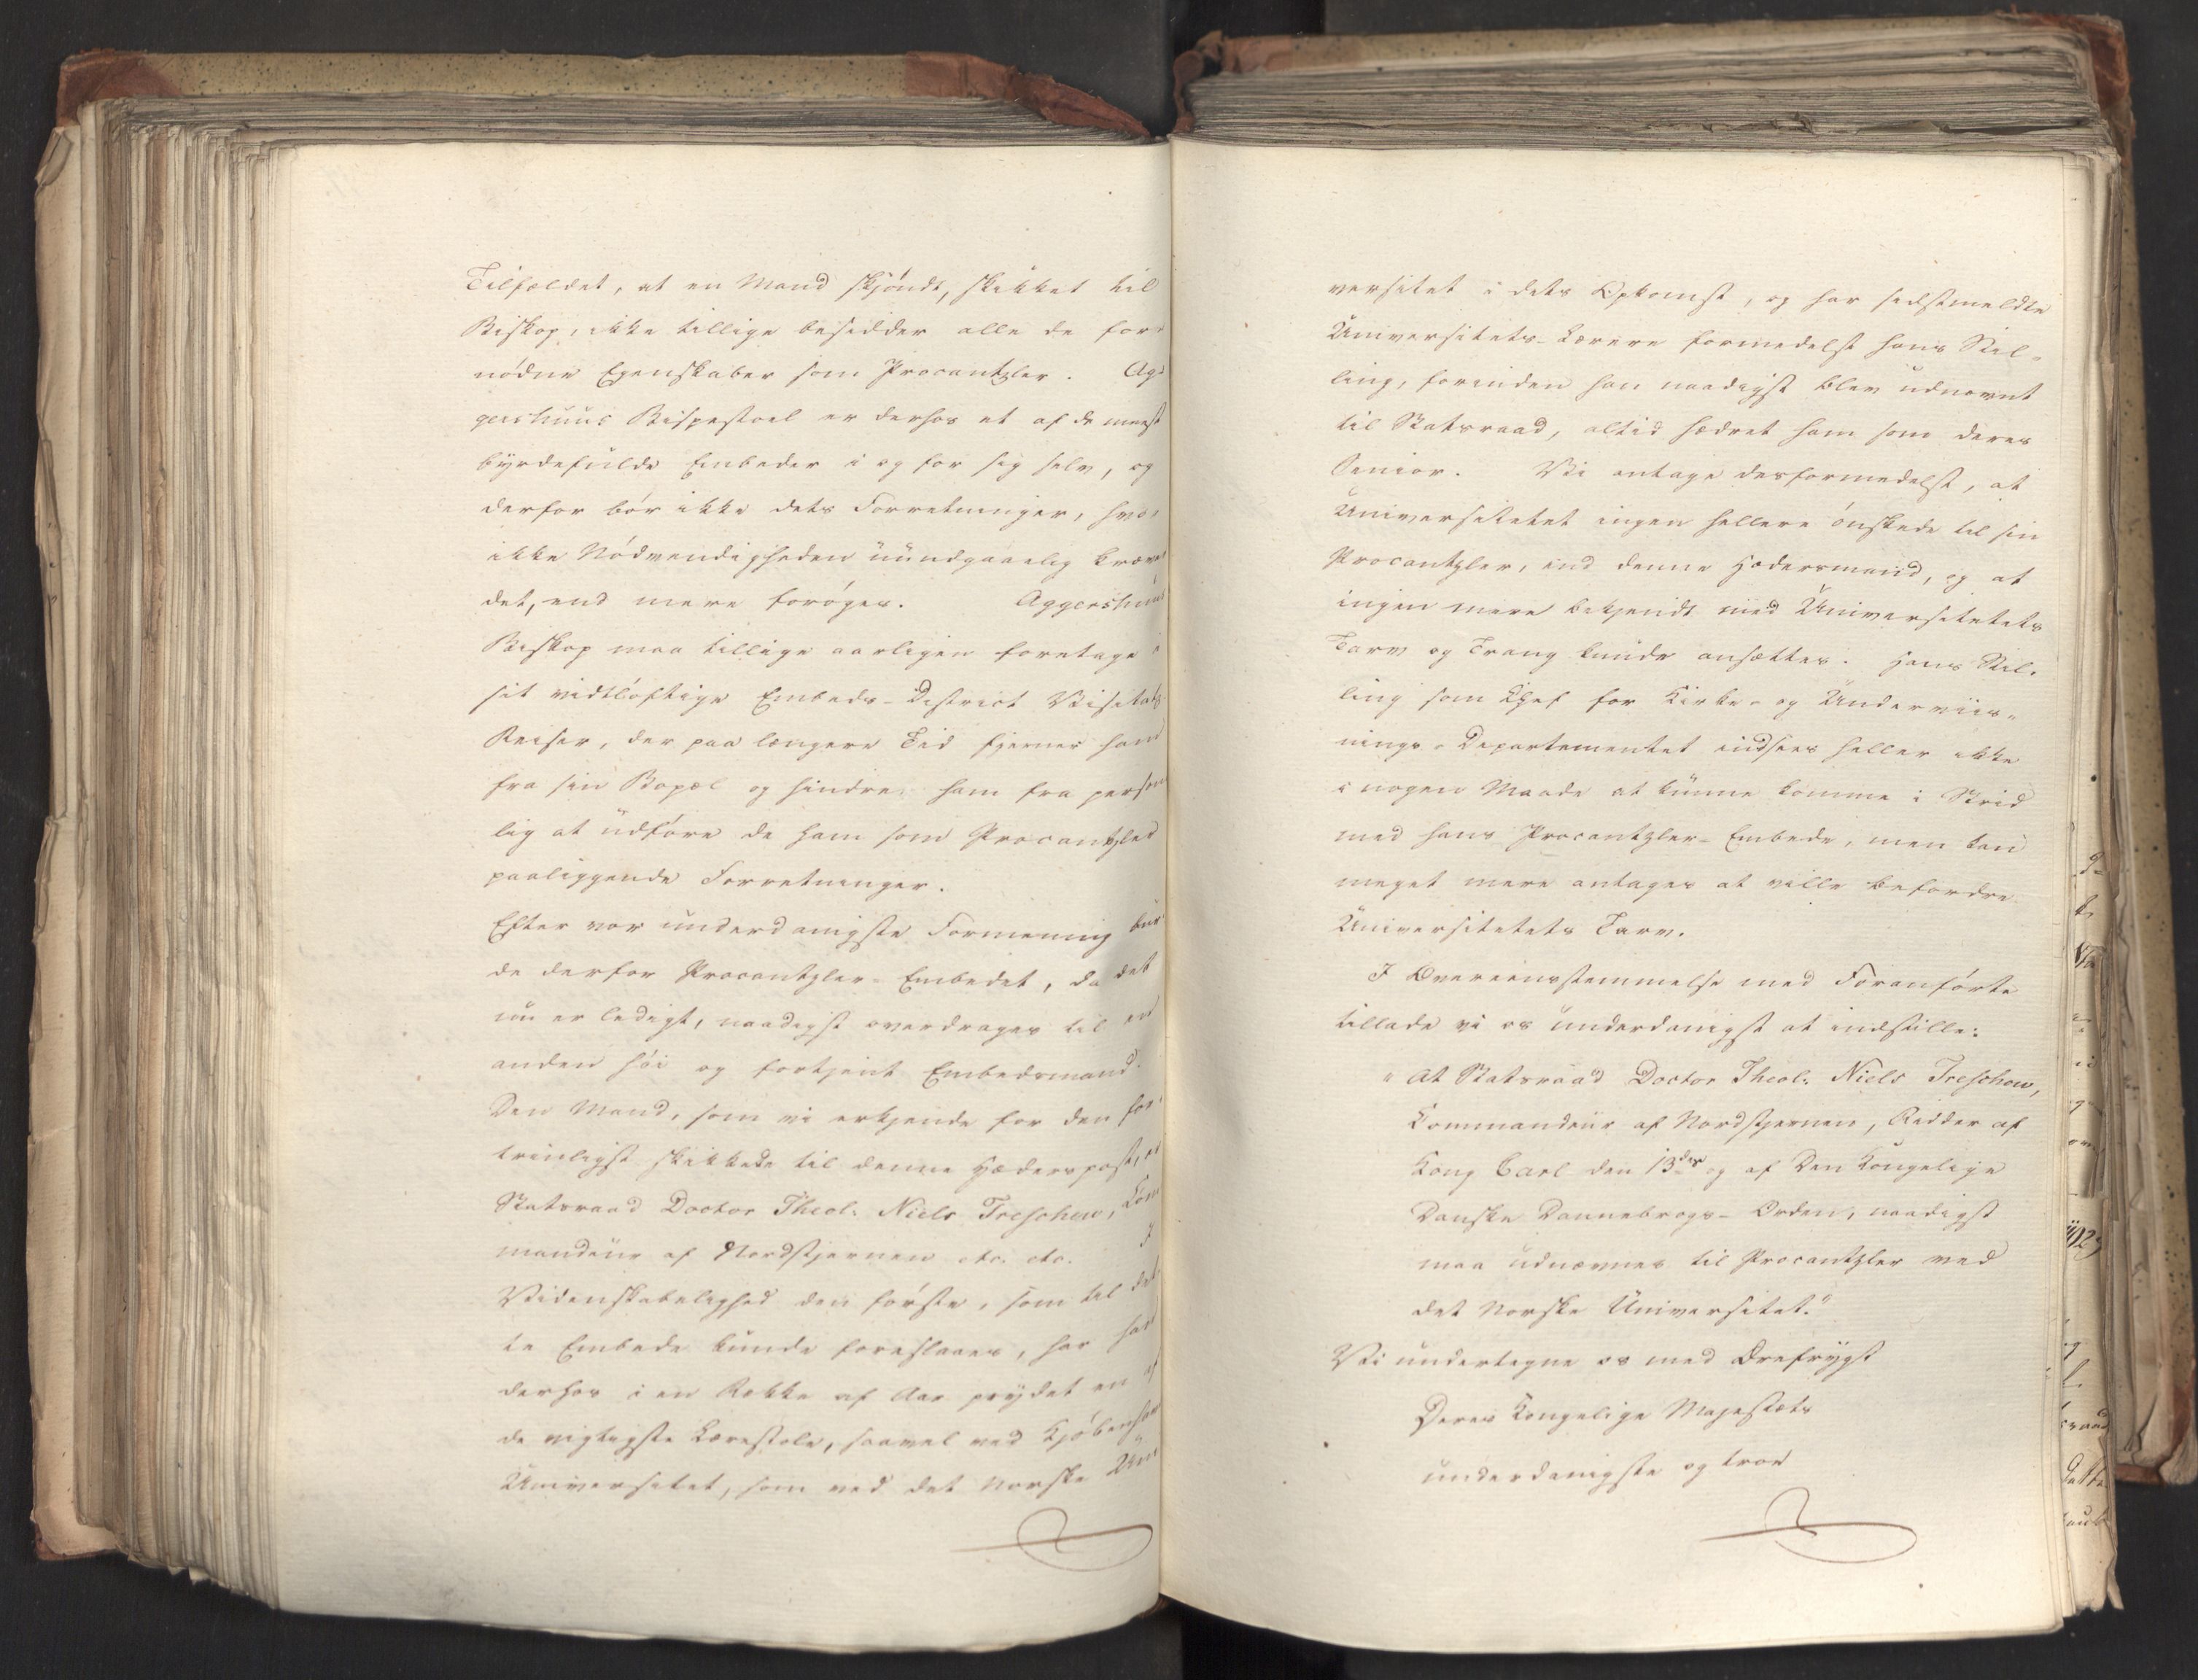 Tilfældet, at en Mand skjöndt, skikket til
Biskop, ikke tillige besidder alle de for-
nödne Egenskaber som Procantzler. Ag-
gershuus Bispestoel er derhos et af de meest
byrdefulde Embeder i og for sig selv, og
derfor bör ikke dets Forretninger, hvor
ikke Nödvendigheden uundgaaelig kræver
det, end mere foröges. Aggershuus
Biskop maa tillige aarligen foretage i
sit vidtlöftige Embeds-District Visitats
Reiser, der paa længere Tid fjerner ham
fra sin Bopæl og hindrer ham fra person
lig at udföre de ham som Procantzler
paaliggende Forretninger.
Efter vor underdanigste Formening bur
de derfor Procantzler-Embedet, da det
nu er ledigt, naadigst overdrages til en
anden höi og fortjent Embedsmand.
Den Mand, som vi erkjende for den for
trinligst skikkede til denne Hæderspost, er
Statsraad Doctor Theol: Niels Treschow, Com
mandeur af Nordstjernen etc. etc. I
Videnskabelighed den förste, som til det
te Embede kunde foreslaaes, har han
derhos i en Række af Aar prydet en af
de vigtigste Lærestole, saavel ved Kjöbenhavns
Universitet, som ved det Norske Uni
versitet i dets Opkomst, og har sidstmeldte
Universitets-Lærere formedelst hans Stil-
ling, forinden han naadigst blev udnævnt
til Statsraad, altid hædret ham som deres
Senior. Vi antage desformedelst, at
Universitetet ingen hellere önskede til sin
Procantzler, end denne Hædersmand, og at
ingen mere bekjendt med Universitetets
Tarv og Trang kunde ansættes. Hans Stil-
ling som Chef for Kirke- og Underviis-
nings-Departementet indsees heller ikke
i nogen Maade at kunne komme i Strid
med hans Procantzler-Embede, men kan
meget mere antages at ville befordre
Universitetets Tarv.
I Overeensstemmelse med Foranförte
tillade vi os underdanigst at indstille:
"At Statsraad Doctor Theol: Niels Treschow,
Commandeur af Nordstjernen, Ridder af
Kong Carl den 13des og af Den Kongelige
Danske Dannebrogs-Orden, naadigst
maa udnævnes til Procantzler ved
det Norske Universitet."
Vi undertegne os med Ærefrygt
Deres Kongelige Majestæts
underdanigste og troe